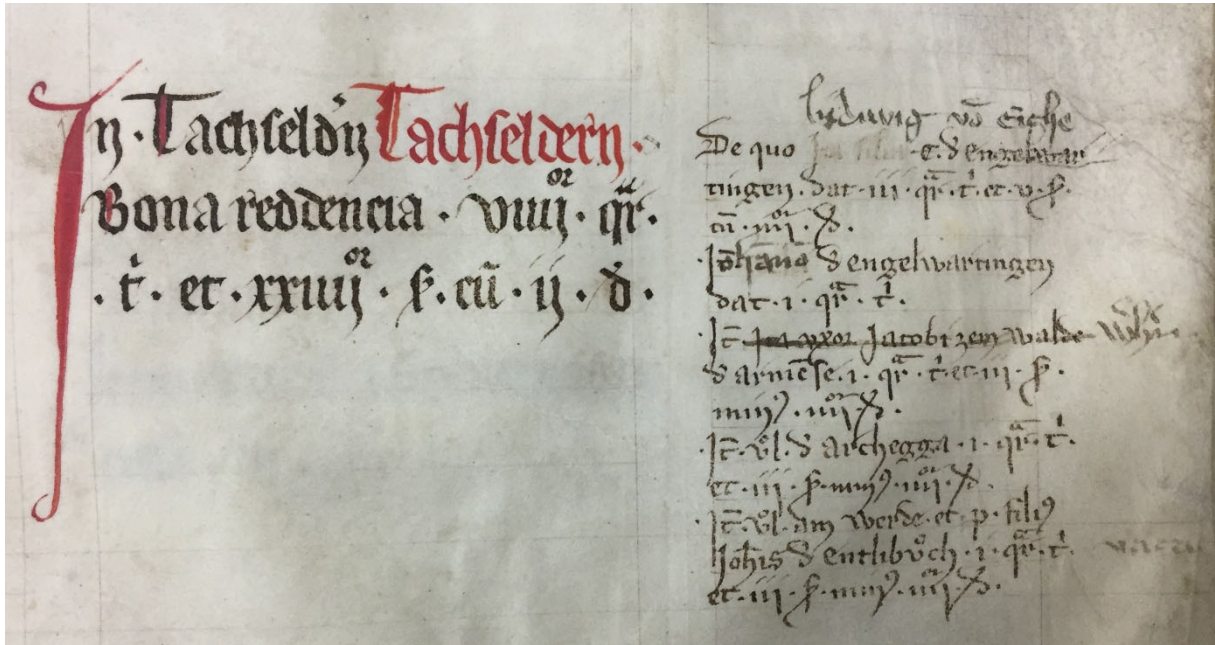 In · Tachseldn̄ Tachseldern ·
Bona reddencia · viiij^or · qr^a ·
· t^i · et · xxiiij^or · ẜ · cū · ij · d ·
ludwig vō eiche
De quo e · d engelwar
tingen · dat · iij · qr^a · t^i · et · v · ẜ ·
cū · iiij^or · d ·
· It̄ d engelwartingen
dat · i · qr^a · t^i ·
· It̄ uxor Jacobi zem walde
d arniēse · i · qr^a · t^i et · iij · ẜ ·
min⁹ · iiij^or · d ·
· It̄ · vͦl · d archegga · i · qr^a · t^i ·
et · iij · ẜ · min⁹ · iiij^or · d ·
· It̄ · vͦl · am werde · et · p · fili⁹
Joh̄is d entlibvͦch · i · qr^a · t^i ·
et · iij · ẜ · min⁹ · iiij^or · d ·